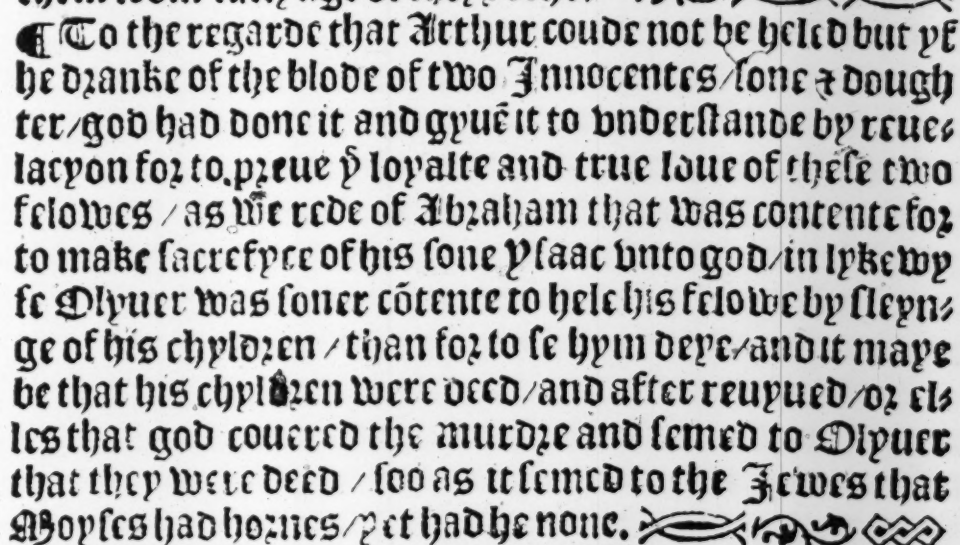 ¶ To the regarde that Arthur coude not be heled but yf
he dranke of the blode of two Innocentes/sone ⁊ dough
ter/god had done it and gyuē it to vnderstande by reue⸗
lacyon for to preue yͤ loyalte and true loue of these two
felowes / as we rede of Abraham that was contente for
to make sacrefyce of his sone Ysaac vnto god/in lyke wy
se Olyuer was soner cōtente to hele his felowe by sleyn⸗
ge of his chyldren / than for to se hym deye/and it maye
be that his chyldren were deed/and after reuyued/or els⸗
les that god couered the murdre and semed to Olyuer
that they were deed / soo as it semed to the Iewes that
Moyses had hornes/yet had he none.